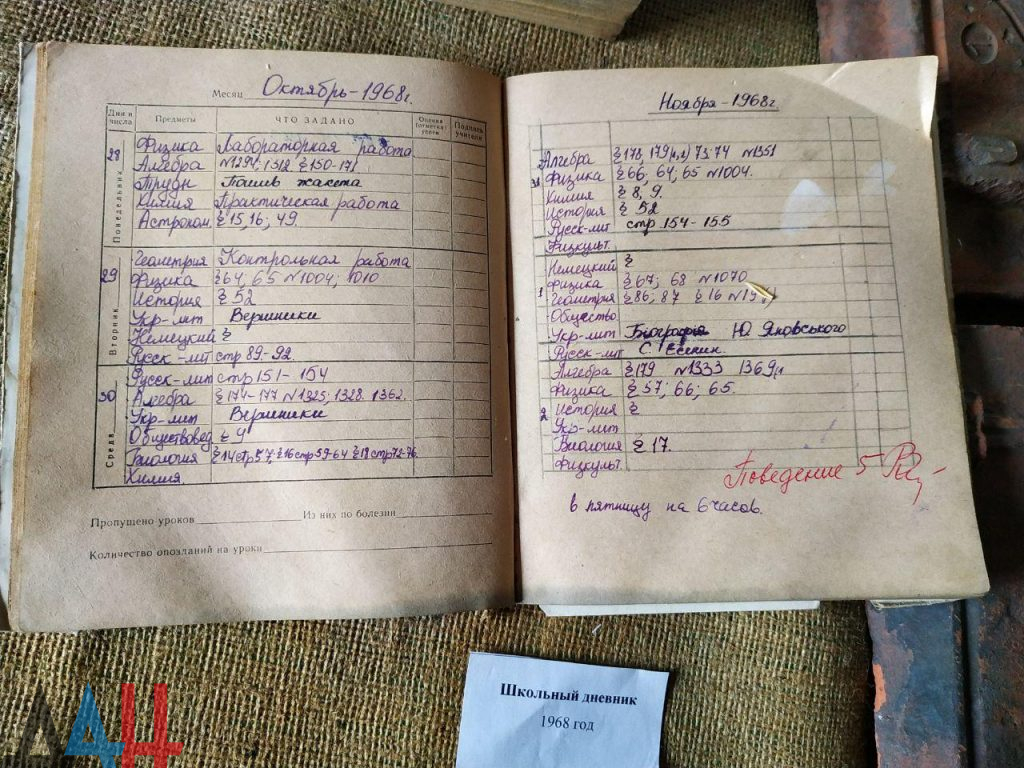 Месяц Октябрь-1968г.
Дни и числа Предметы ЧТО ЗАДАНО Оценка (отметка) успев Подпись учителя
28 Понедельник
Физика Лабораторная работа
Алгебра №1294; 1312 § 150-171
Трудн Пошив жакета
Химия Практическая работа
Астроном. § 15, 16; 49.
29 Вторник
Геометрия Контрольная работа
Физика § 64; 65 №1004; 1010
История § 52
Укр-лит Вершники
Немецкий §
Русск-лит стр 89-92.
30 Среда
Русск-лит стр 151-154
Алгебра § 174-177 №1325; 1328. 1362.
Укр-лит Вершники
Обществовед § 9
Биология § 14 стр 57; § 16 стр 59-64 § 18 стр 72-76.
Химия.
Пропущено уроков Из них по болезни
Количество опозданий на уроки
Ноября-1968г
Алгебра § 178, 179 73; 74 №1351
31 Физика § 66, 64, 65 №1004.
Химия § 8, 9.
История § 52
Русск-лит стр 154-155
Физкульт.
Немецкий §
Физика § 67; 68 №1070
1 Геометрия § 86; 87 § 16
Общество
Укр-лит Біографія Ю. Яновського
Русск-лит С. Есенин.
Алгебра § 179 №1333 1369
Физика § 57; 66; 65.
2 История §
Укр-лит
Биология § 17.
Физкульт.
Поведение 5
в пятницу на 6 часов.
Школьный дневник
1968 год
ДАН